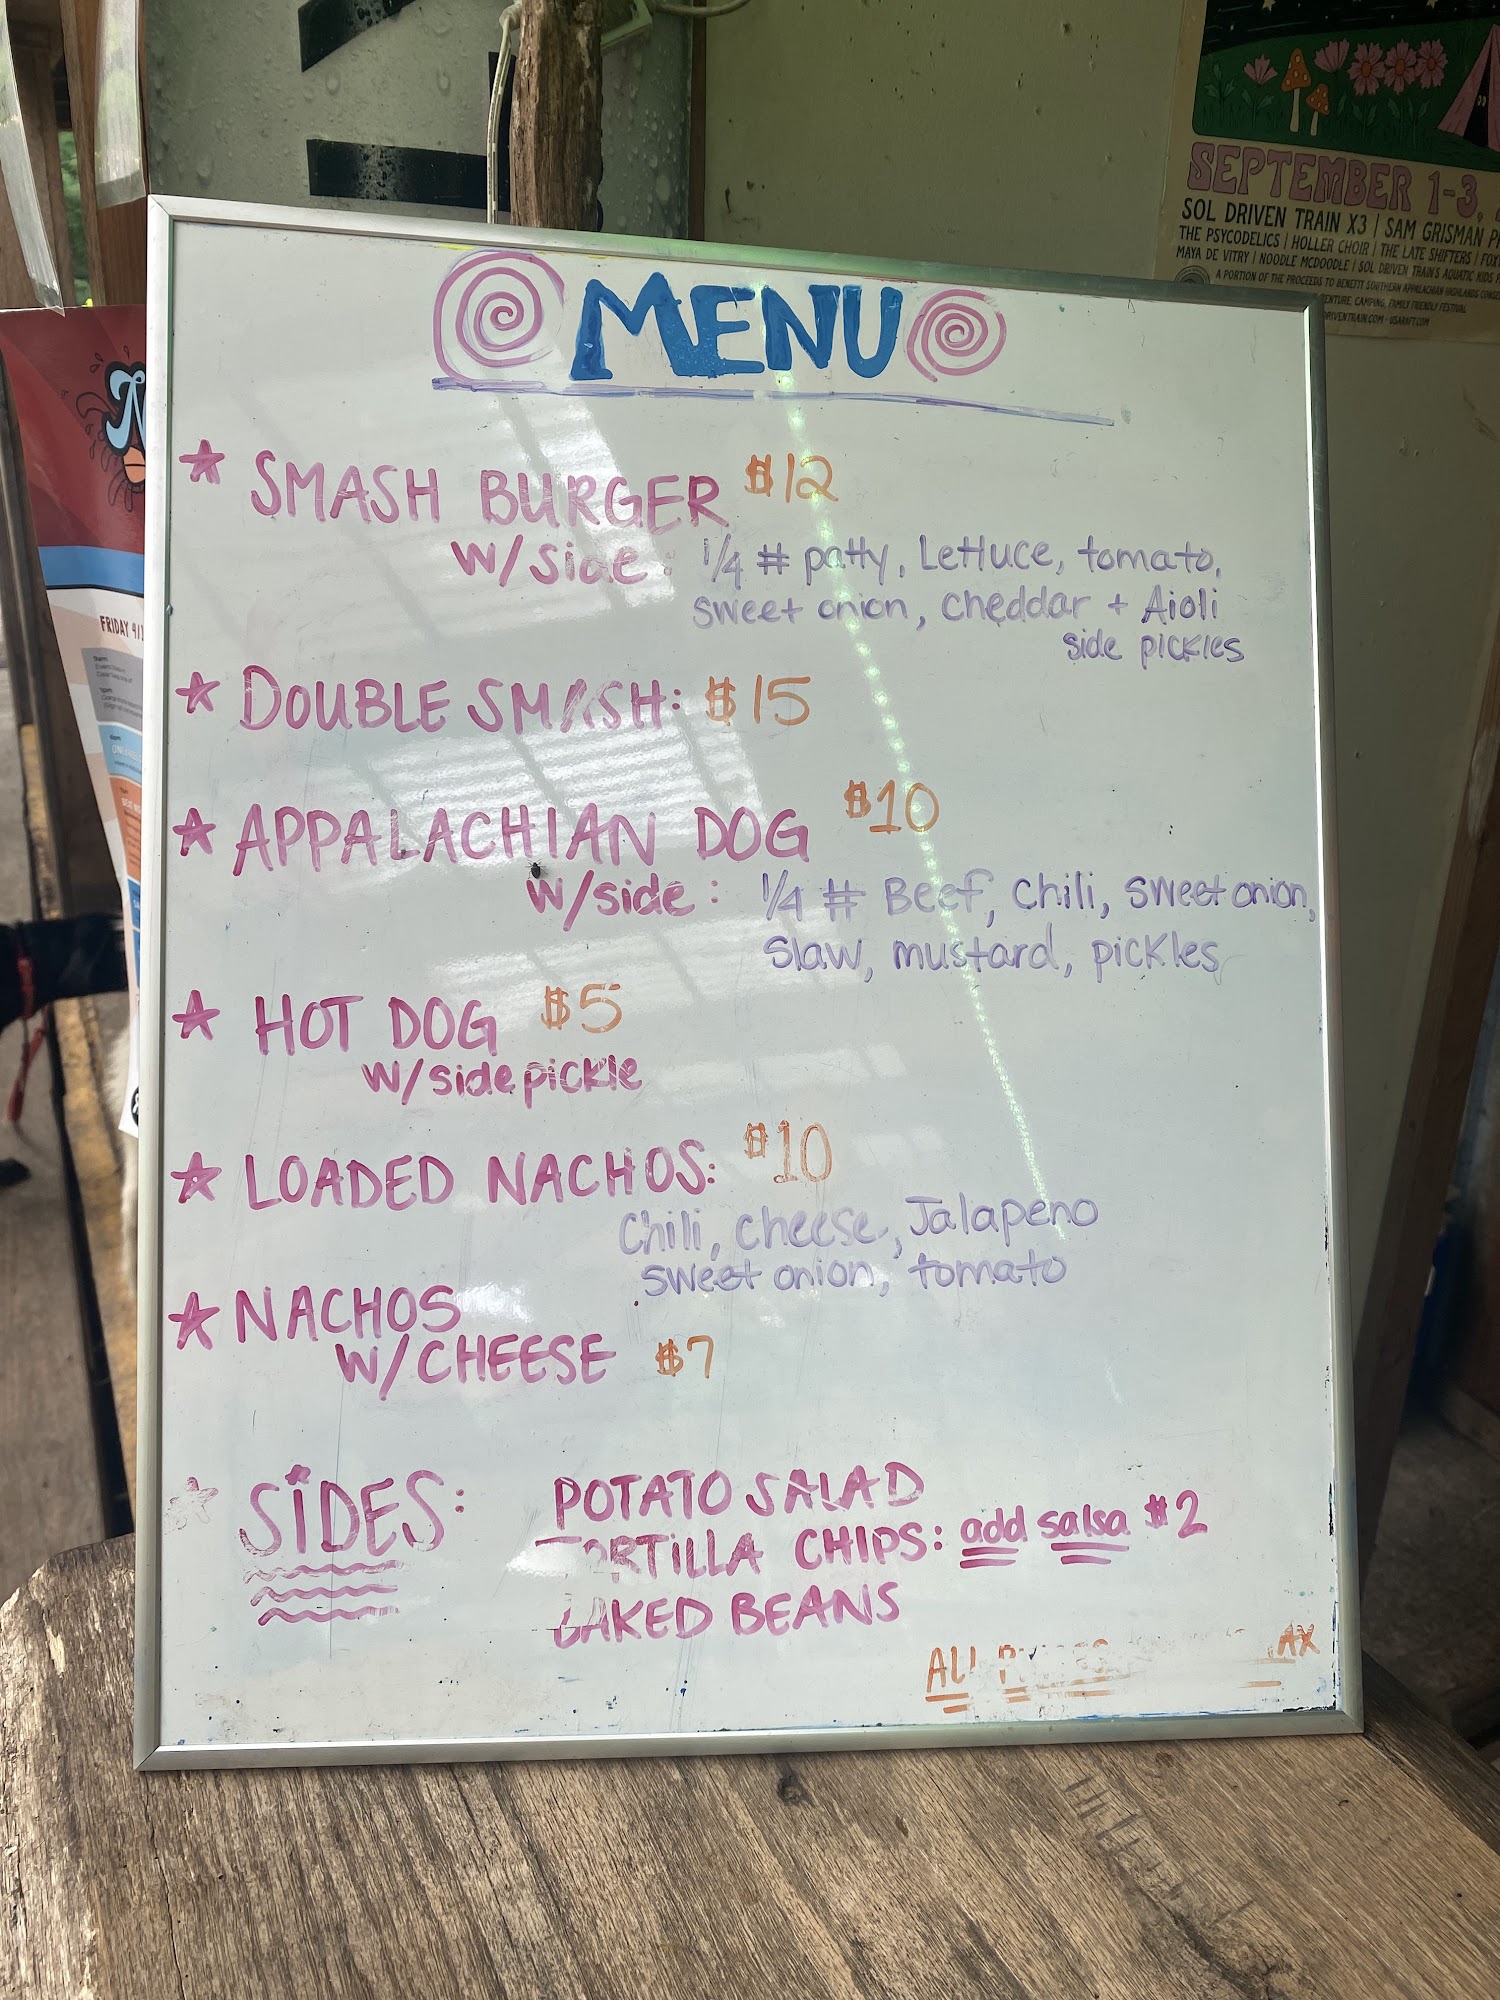 MENU
SMASH BURGER $12
w/side: 1/4 # patty, Lettuce, tomato,
sweet onion, cheddar + Aioli
side pickles
DOUBLE SMASH: $15
APPALACHIAN DOG $10
w/side: 1/4 # Beef, Chili, sweet onion,
slaw, mustard, pickles
HOT DOG $5
w/side pickle
LOADED NACHOS: $10
Chili, cheese, Jalapeno
sweet onion, tomato
NACHOS
W/CHEESE $7
SIDES: POTATO SALAD
TORTILLA CHIPS: add salsa $2
BAKED BEANS
ALL
SEPTEMBER 1-3,
SOL DRIVEN TRAIN X3 | SAM GRISMAN
THE PSYCODELICS | HOLLER CHOIR | THE LATE SHIFTERS |
MAYA DE VITRY | NOODLE MCDOODLE | SOL DRIVEN TRAIN'S AQUATIC KIDS
A PORTION OF THE PROCEEDS TO BENEFIT SOUTHERN APPALACHIAN HIGHLANDS
CAMPING, FAMILY FRIENDLY FESTIVAL
USARAFT.COM
FRIDAY